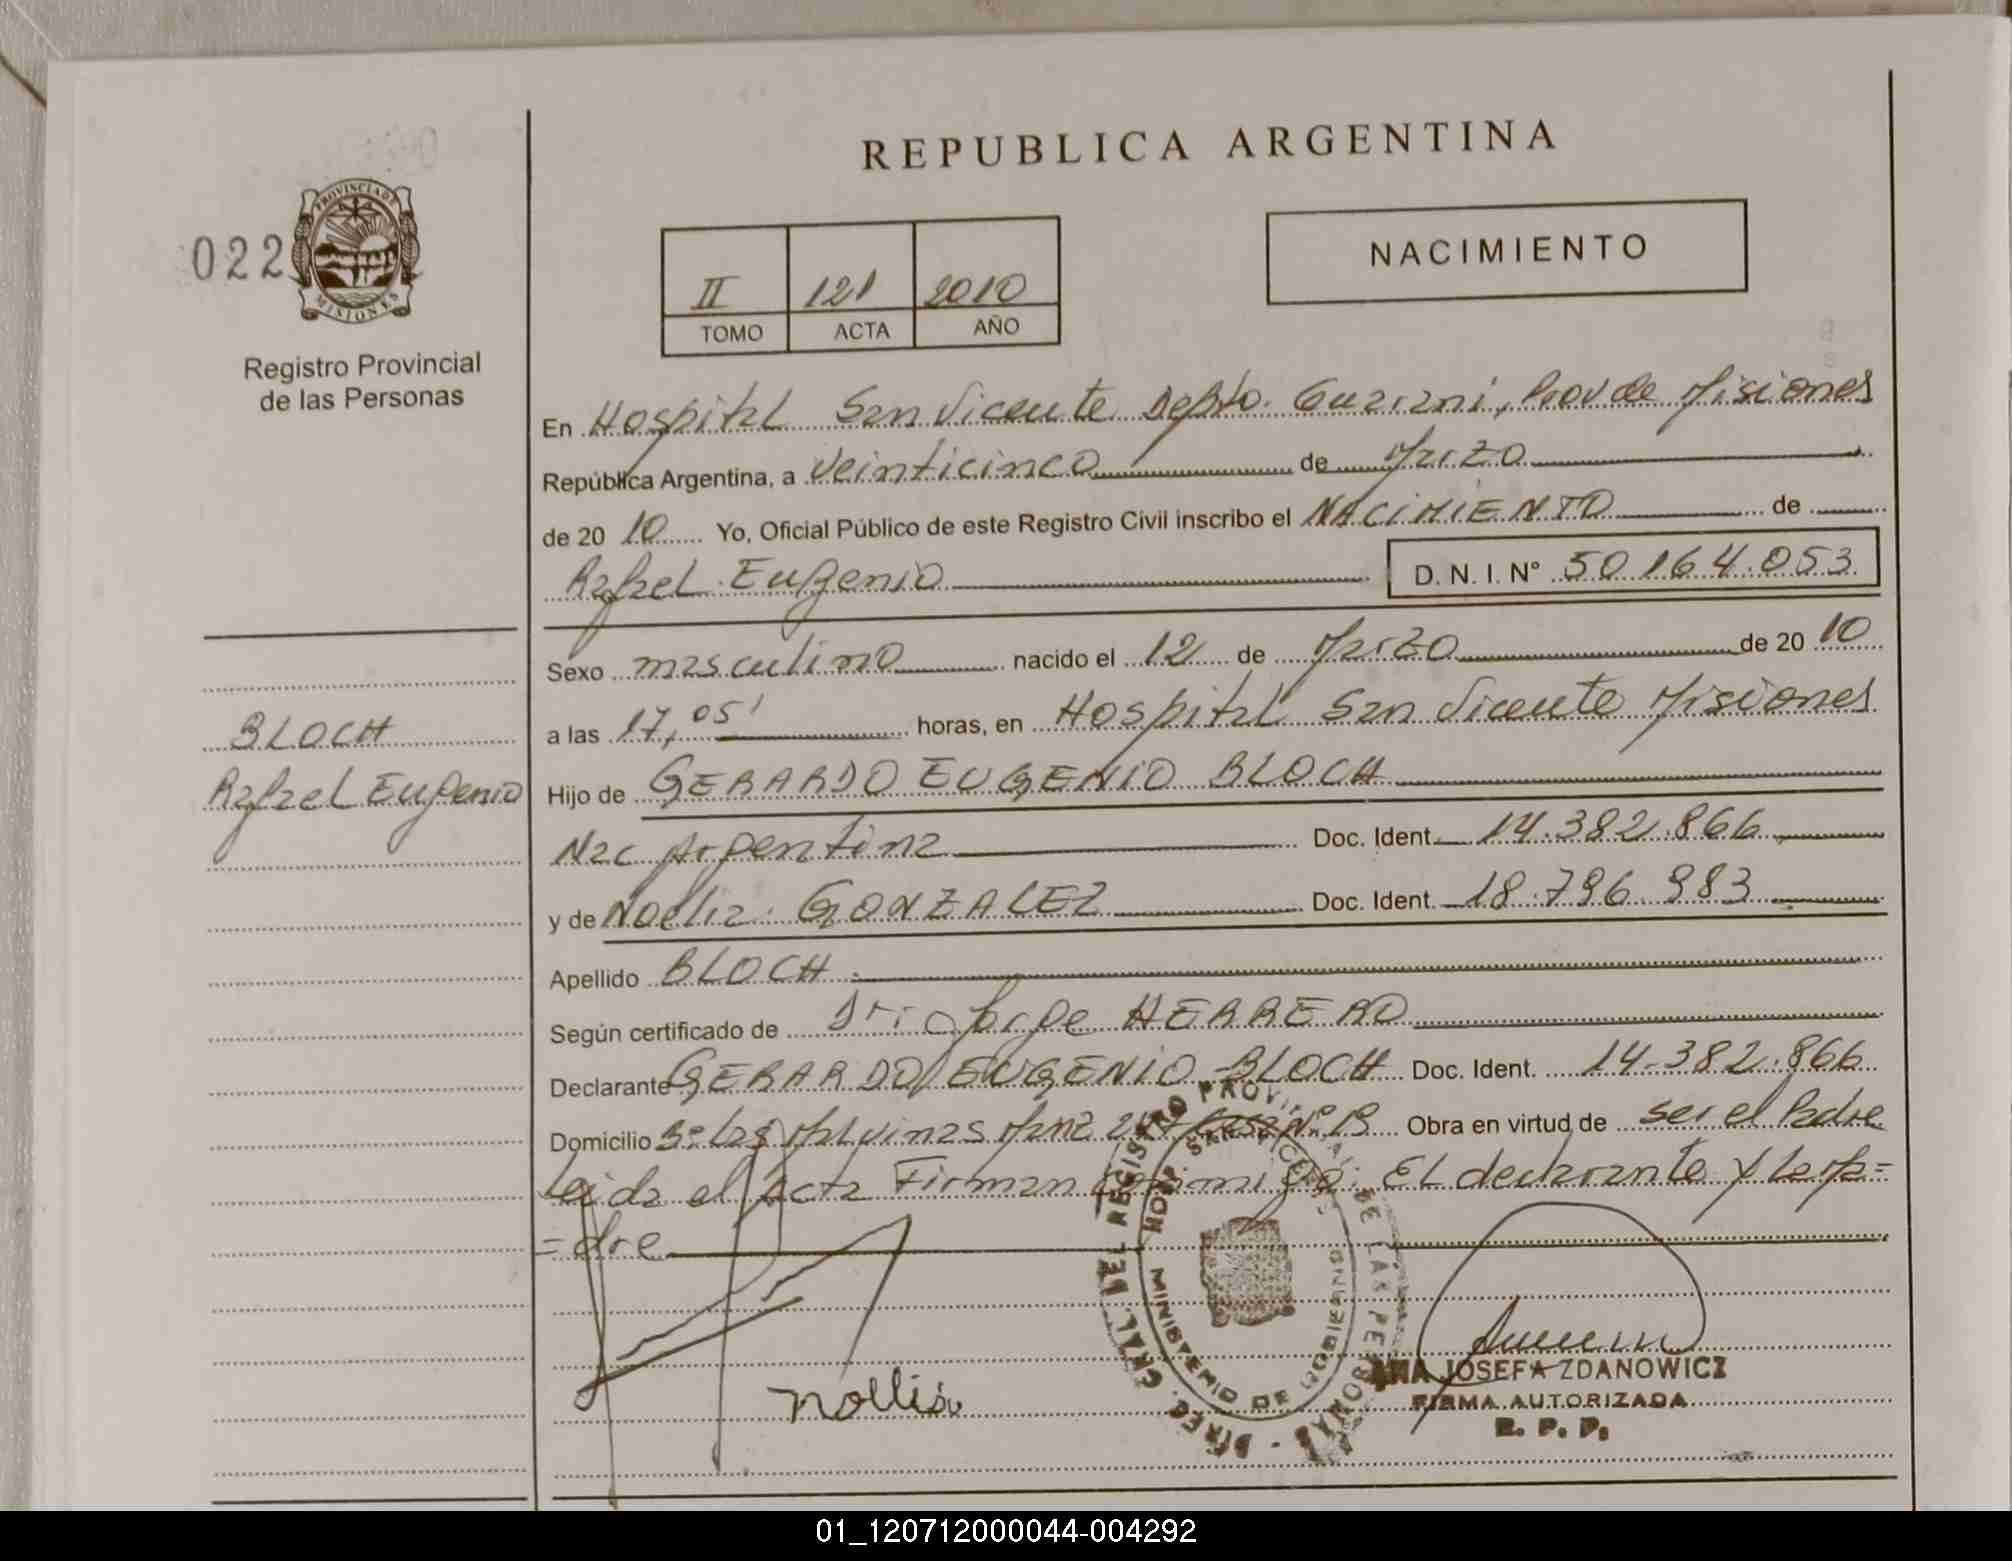 REPUBLICA ARGENTINA
022
PROVINCIA DE
MISIONES
Registro Provincial
de las Personas
II 121 2010
TOMO ACTA AÑO
NACIMIENTO
En Hospital San Vicente Depto. Guarani, Prov de Misiones
República Argentina, a Veinticinco de Marzo
de 20 10 Yo, Oficial Público de este Registro Civil inscribo el NACIMIENTO de
Rafael Eugenio D. N. I. N° 50.164.053
Sexo masculino nacido el 12 de Marzo de 20 10
a las 17,05' horas, en Hospital San Vicente Misiones
Hijo de GERARDO EUGENIO BLOCH
Nac Argentina Doc. Ident. 14.382.866
y de Noelia GONZALEZ Doc. Ident. 18.796.983
Apellido BLOCH
Según certificado de Jorge HERRERO
Declarante GERARDO EUGENIO BLOCH Doc. Ident. 14.382.866
Domicilio Bº Las Malvinas Casa Nº 13 Obra en virtud de ser el Padre
Leida el acta Firman conmigo: El declarante y la Ma=
=dre
BLOCH
Rafael Eugenio
DIREC. GRAL. DEL REGISTRO PROVINCIAL DE LAS PERSONAS
HOSP. SAN VICENTE
MINISTERIO DE GOBIERNO
nollia
ANA JOSEFA ZDANOWICZ
FIRMA AUTORIZADA
R. P. P.
01_120712000044-004292